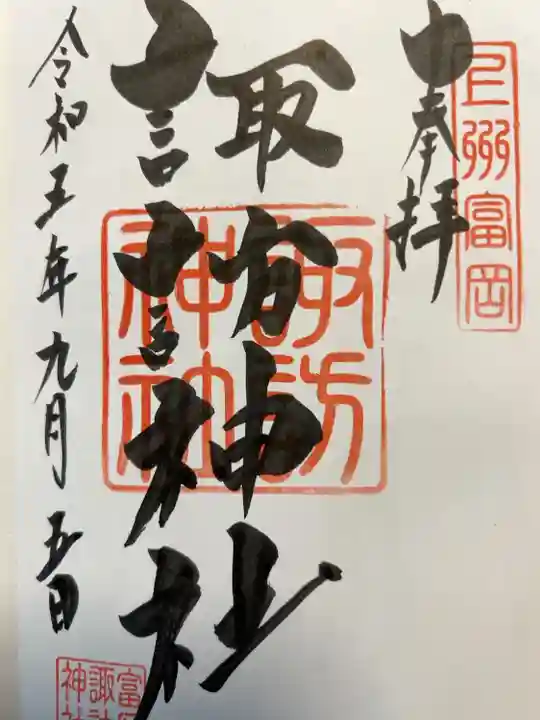 上州富岡
奉拝
諏訪神社
諏訪神社
令和五年九月五日
富岡
諏訪
神社